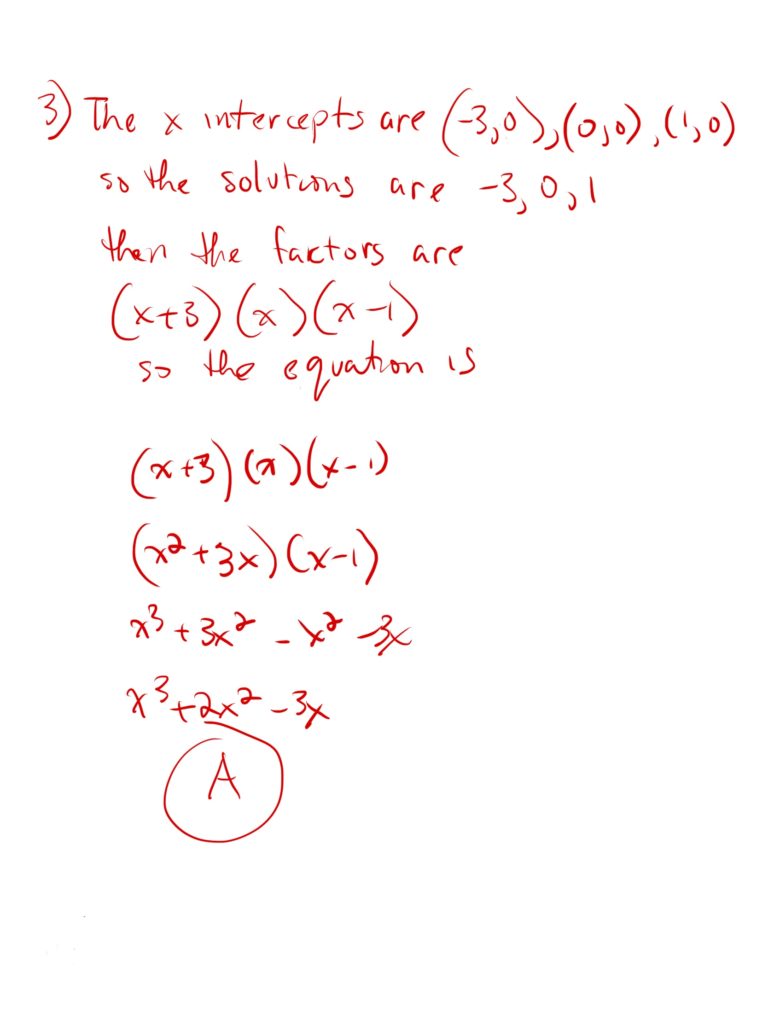 3) The x intercepts are (-3,0),(0,0),(1,0)
so the solutions are -3, 0, 1
then the factors are
(x+3)(x)(x-1)
so the equation is
(x+3)(x)(x-1)
(x²+3x)(x-1)
x³+3x²-x²-3x
x³+2x²-3x
A